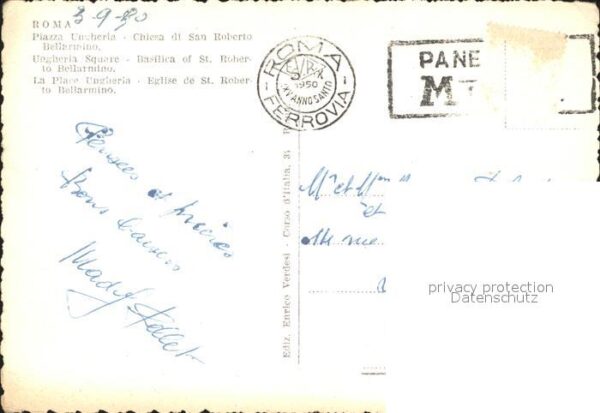 ROMA
3-9-50
Piazza Ungheria - Chiesa di San Roberto
Bellarmino.
Ungheria Square - Basilica of St. Rober-
to Bellarmino.
La Place Ungheria - Eglise de St. Rober-
to Bellarmino.
ROMA
1950
XXV ANNO SANTO
FERROVIA
PANE
M
Pensées et prières
Bons baisers
Mady
Ediz. Enrico Verdesi - Corso d'Italia, 34
Mr et Mme
et
rue
privacy protection
Datenschutz